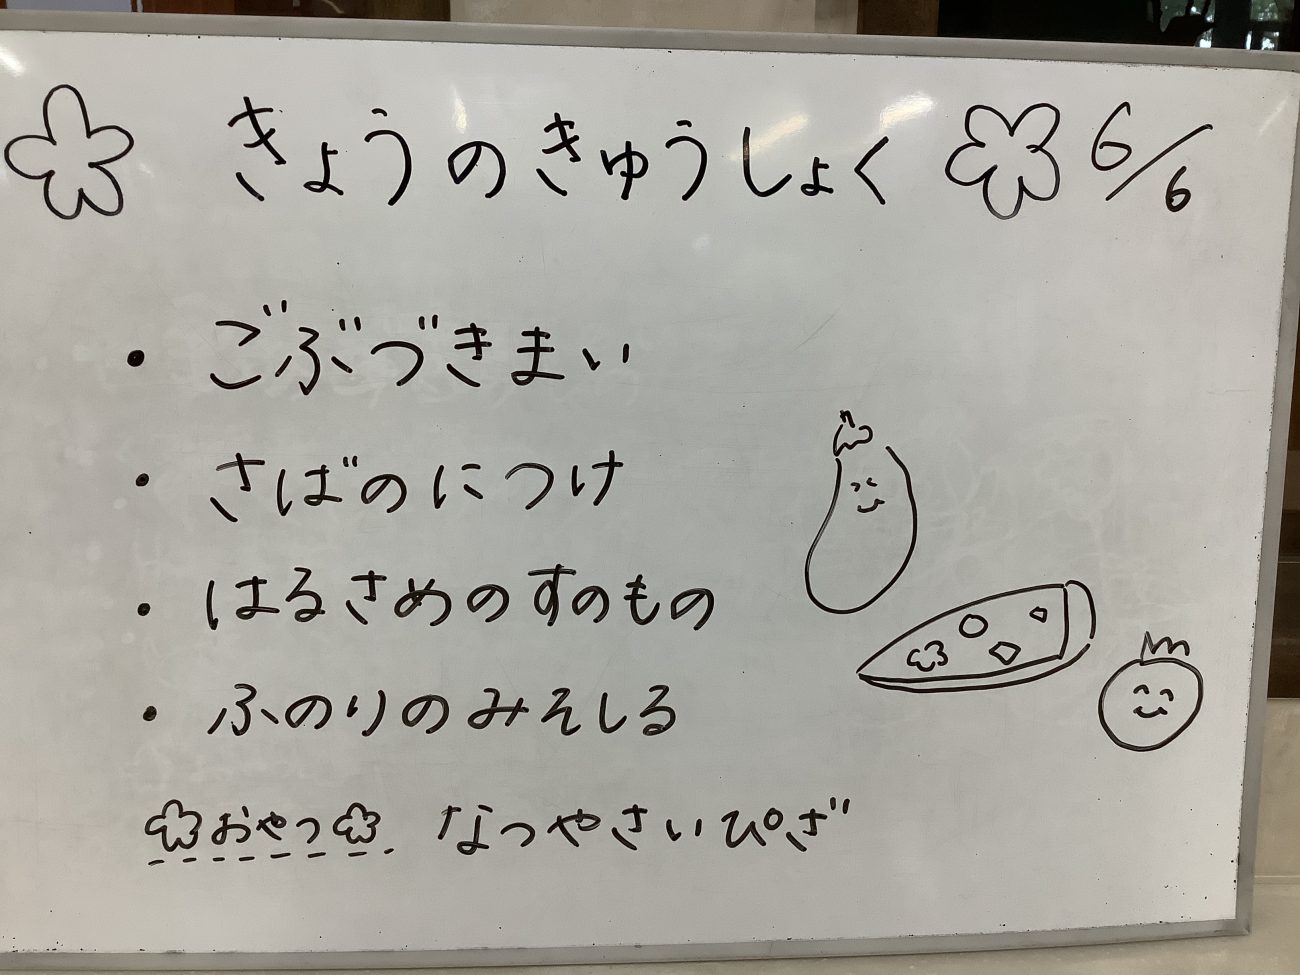 きょうのきゅうしょく 6/6
・ごぶづきまい
・さばのにつけ
・はるさめのすのもの
・ふのりのみそしる
おやつ なつやさいぴざ